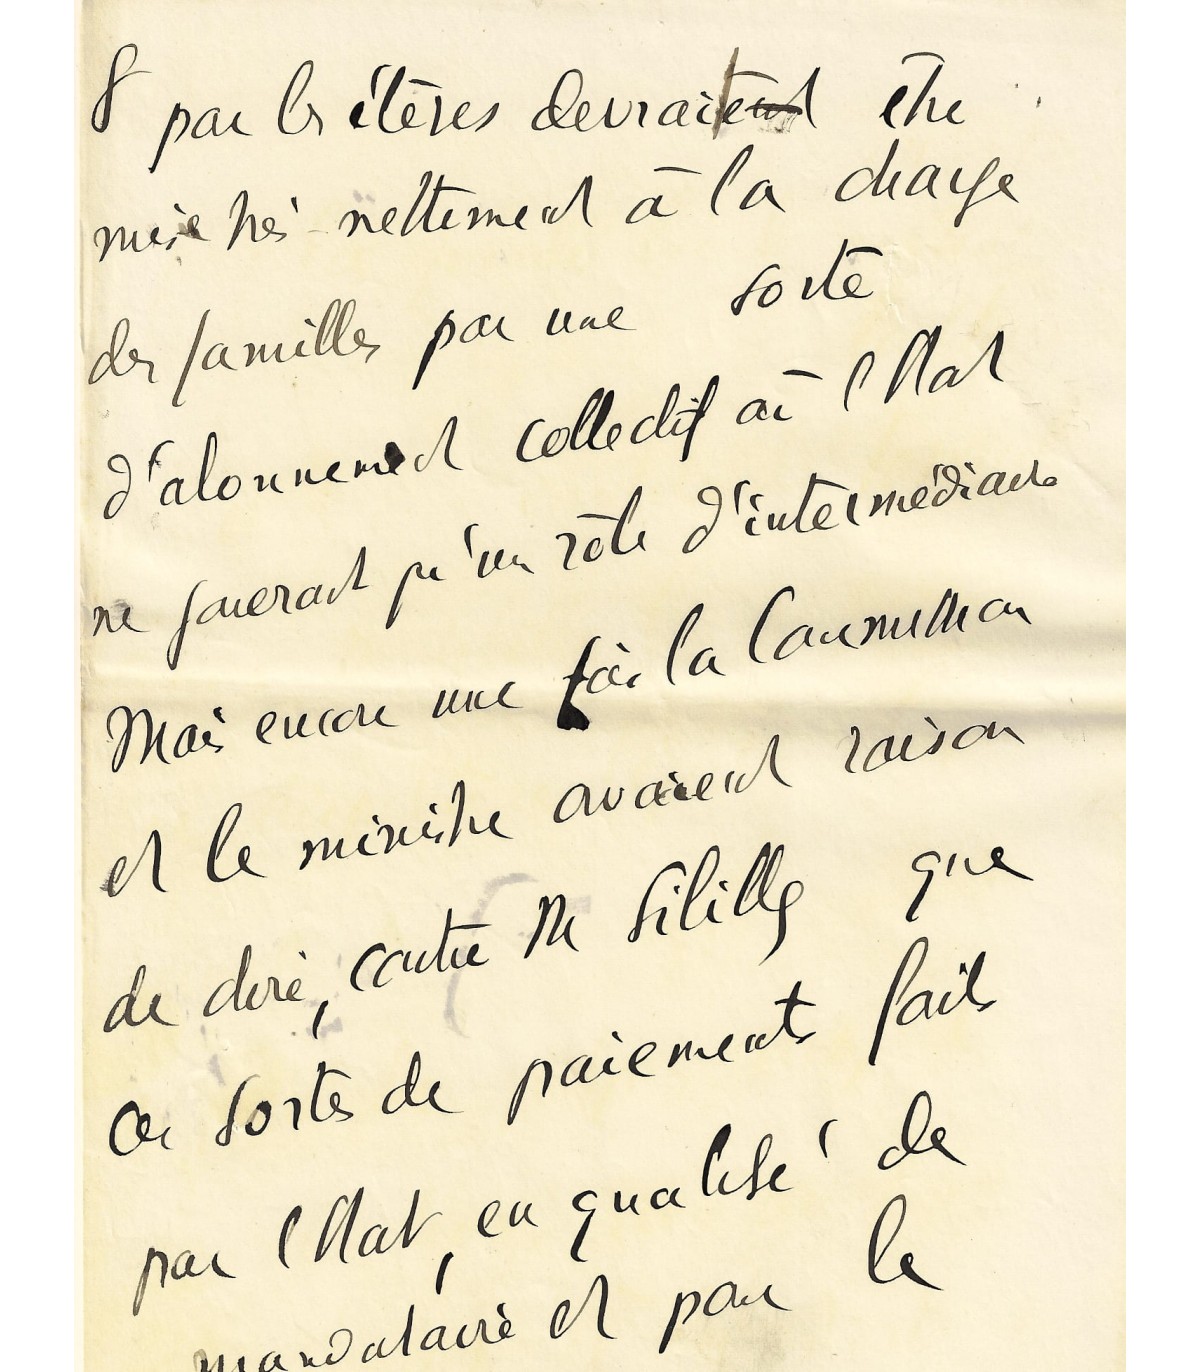 8 par les élèves devraient être
mises très nettement à la charge
des familles par une sorte
d'abonnement collectif où l'Etat
ne jouerait qu'un rôle d'intermédiaire
Mais encore une fois la Commission
et le ministre avaient raison
de dire, contre M Sibille que
ces sortes de paiements faits
par l'Etat, en qualité de
mandataire et pour le